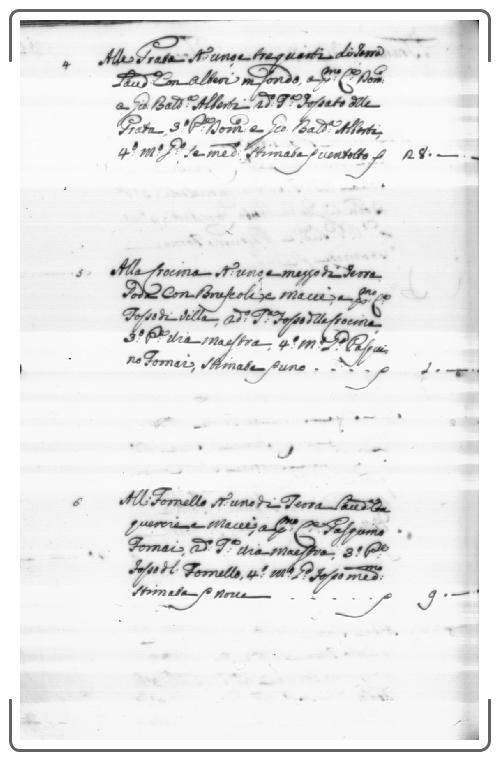 4 Alla Prata St.º uno e tre quarti di Terra
Laud.ª Con alberi in fondo, a p.mo C.º Dom.
e Gio. Batt.ª Alberti, 2.º P.ª Fossato delle
Prata, 3.º P.ª Dom. e Gio. Batt.ª Alberti,
4.º m.º P.ª se med. Stimata p ventotto p 28. —
5. Alla frocina St.º uno e mezzo di Terra
Con Bruscoli, e Maccie, a p.mo C.º
Fosso di Villa, 2.º P.ª Fosso della frocina,
3.º P.ª via maestra, 4.º m.º P.ª Pasqui,
no Fornai, Stimata p uno . . . . p 1. —
6 Al Fornello St.º uno di Terra Laud.ª Con
quercie e Maccie, a p.mo C.º Pasquino
Fornai, 2.º P.ª via Maestra, 3.º P.ª
Fosso del Fornello, 4.º m.º P.ª Fosso med.mo
Stimata p nove . . . . . p 9. —